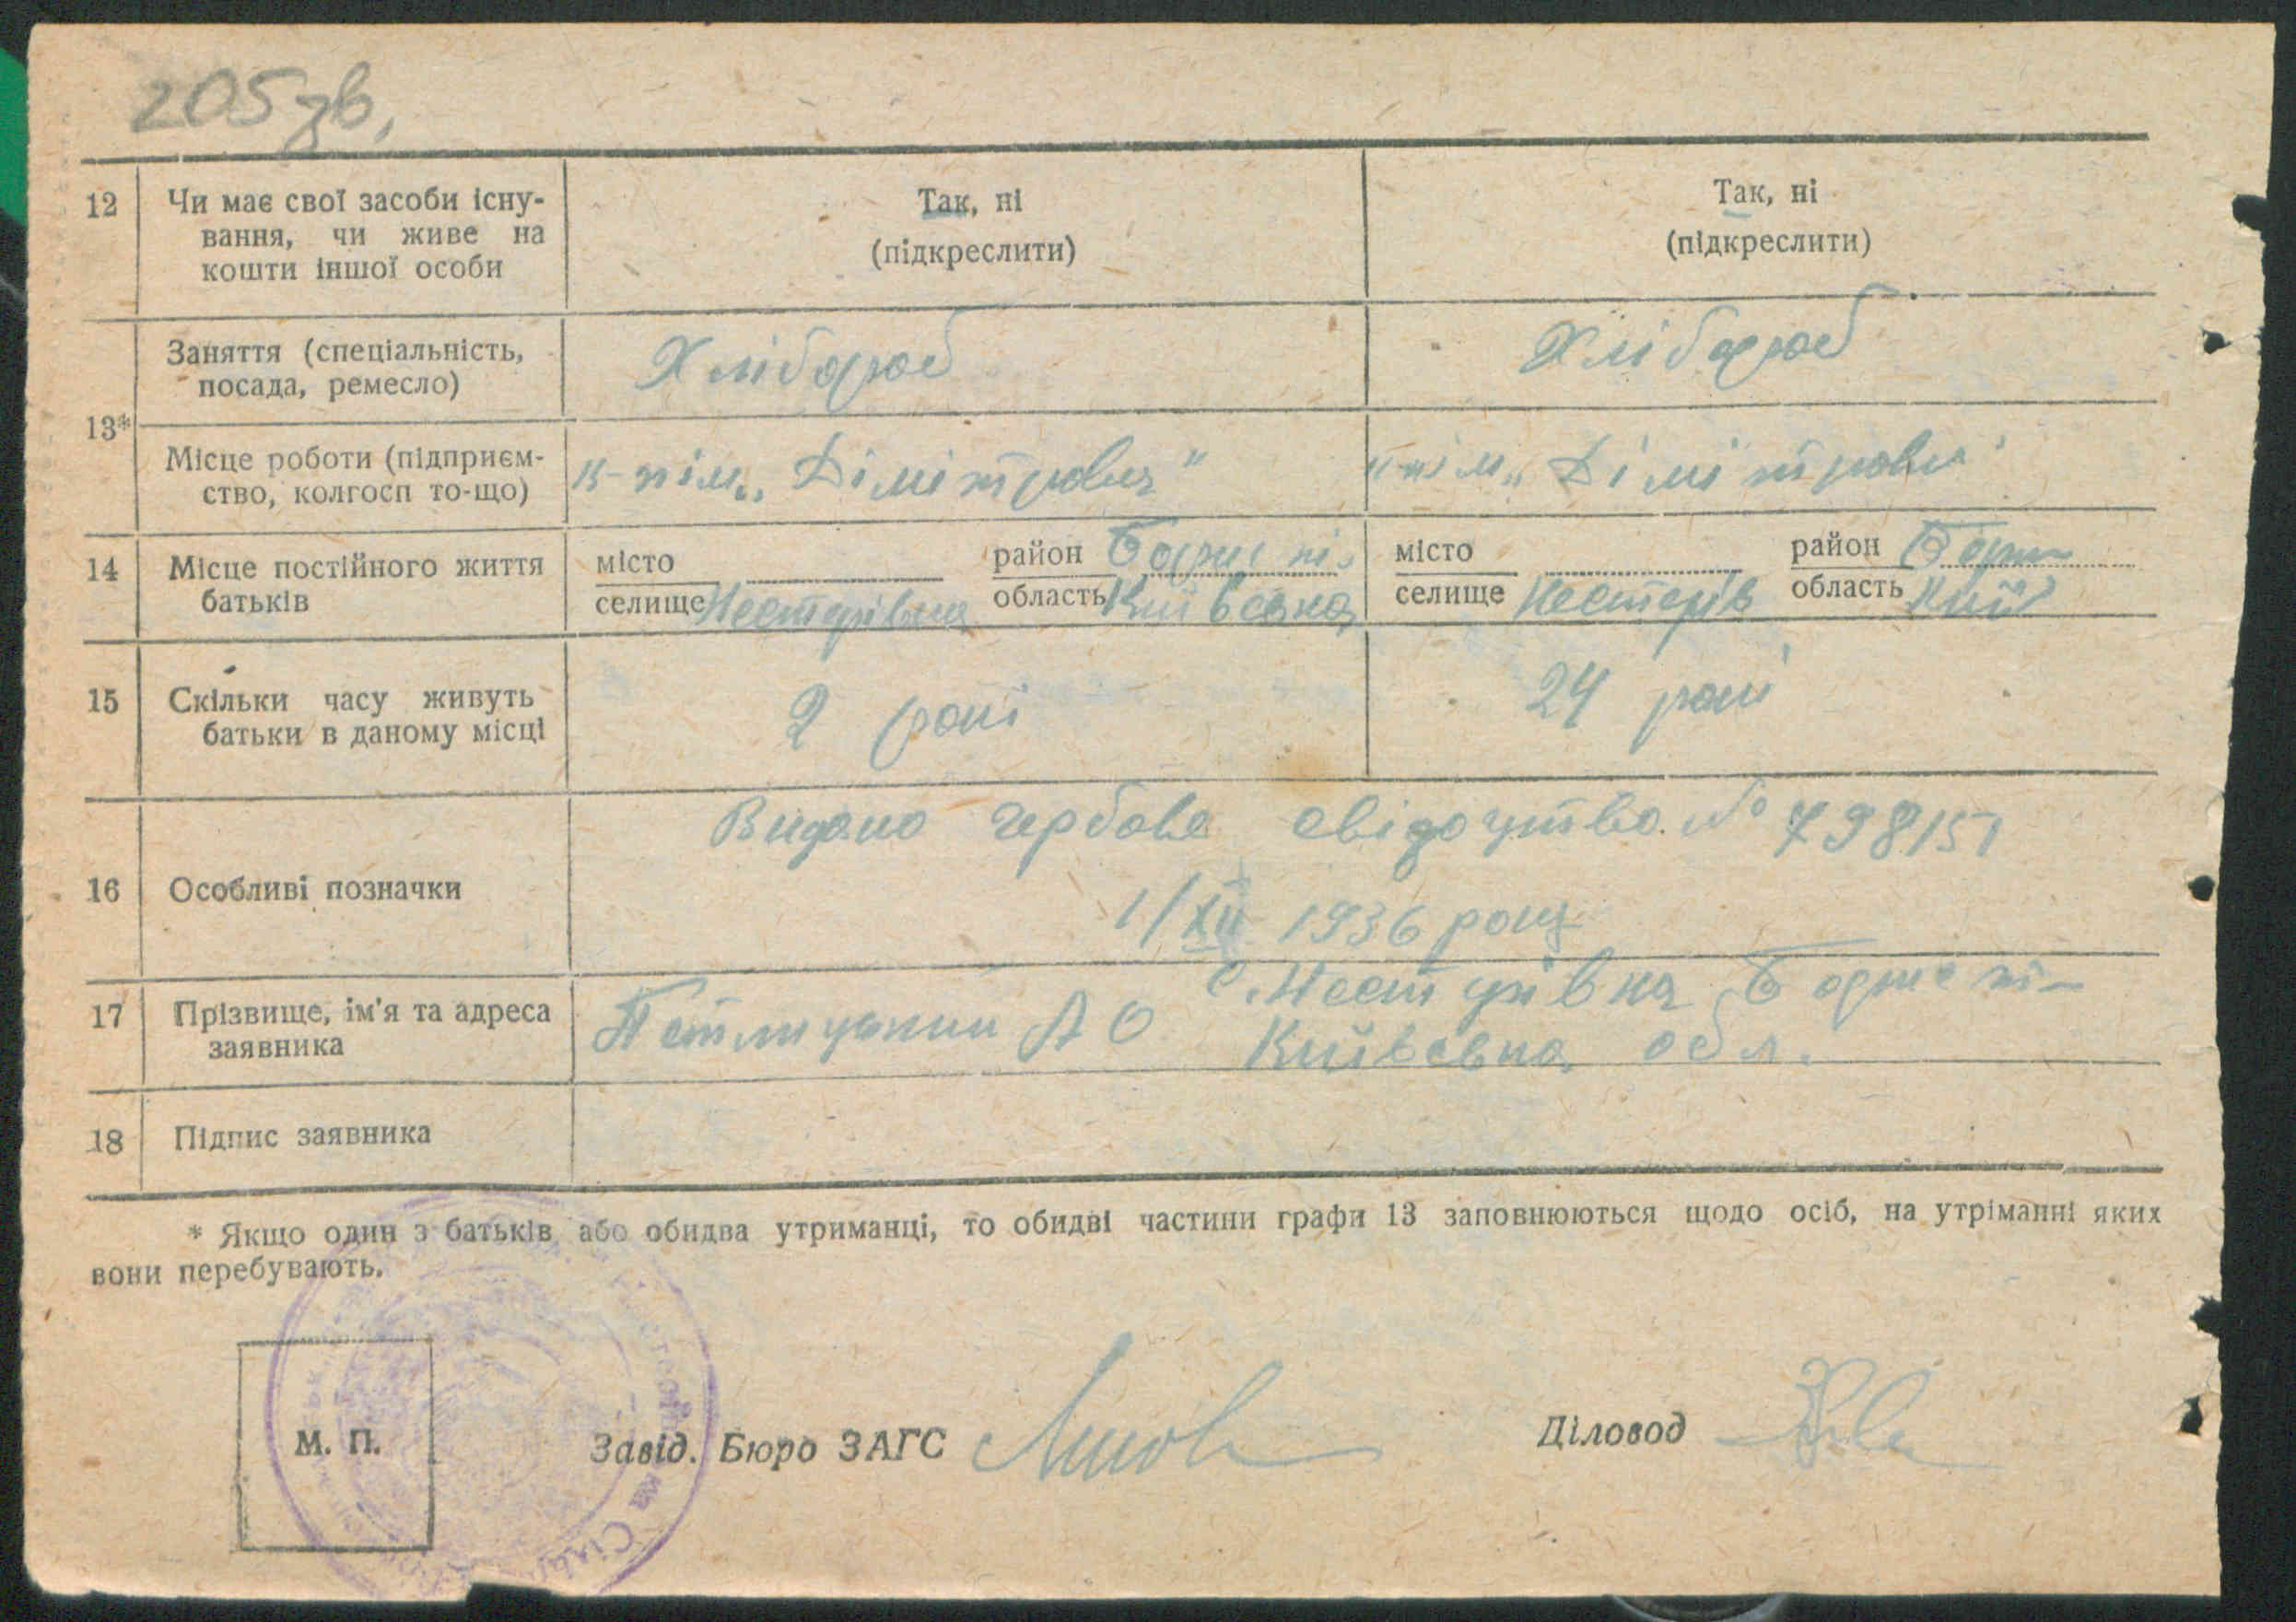 205 зв.
12 Чи має свої засоби існу-
вання, чи живе на
кошти іншої особи
Так, ні
(підкреслити)
Так, ні
(підкреслити)
13*
Заняття (спеціальність,
посада, ремесло)
Хлібороб
Хлібороб
Місце роботи (підприєм-
ство, колгосп то-що)
Дімітрова"
Дімітрова"
14 Місце постійного життя
батьків
місто
селище Нестерівка
район Бориспі.
область Київська
місто
селище Нестерів
район Бори
область Київ
15 Скільки часу живуть
батьки в даному місці
2 роки
24 роки
16 Особливі позначки
Видано гербове свідоцтво № 798151
1/XII 1936 року
17 Прізвище, ім'я та адреса
заявника
А О
с. Нестерівка
Київська обл.
18 Підпис заявника
* Якщо один з батьків або обидва утриманці, то обидві частини графи 13 заповнюються щодо осіб, на утріманні яких
вони перебувають.
М. П.
Завід. Бюро ЗАГС
Діловод